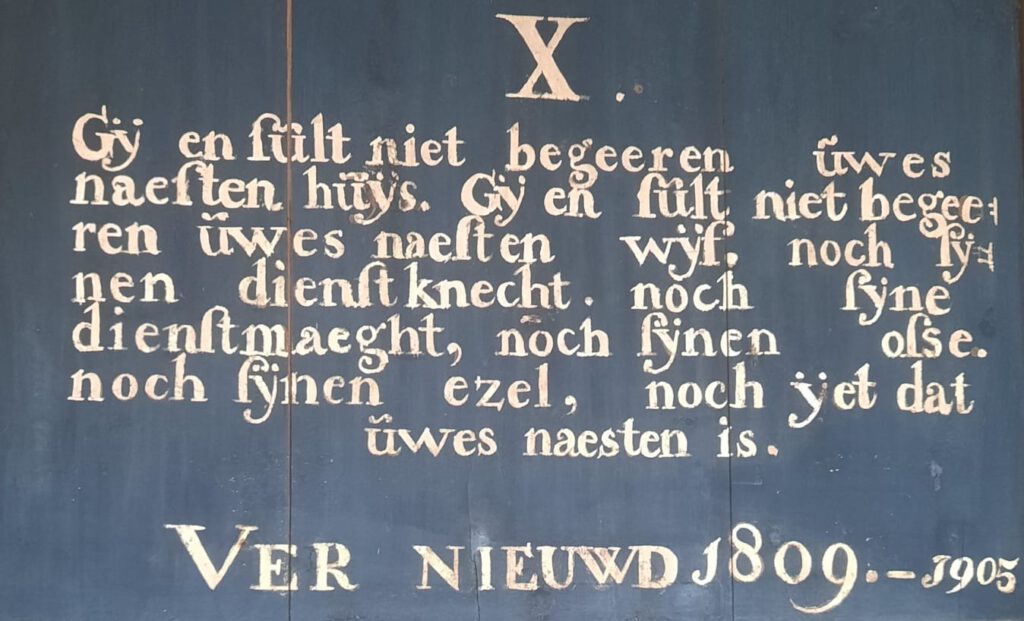 X.
Gÿ en ſũlt niet begeeren ũwes
naeſten hũÿs. Gÿ en ſũlt niet begee⹀
ren ũwes naeſten wÿf. noch ſÿ⹀
nen dienſtknecht. noch ſÿne
dienſtmaeght, noch ſÿnen oſse.
noch ſÿnen ezel, noch ÿet dat
ũwes naesten is.
VER NIEUWD 1809.–1905